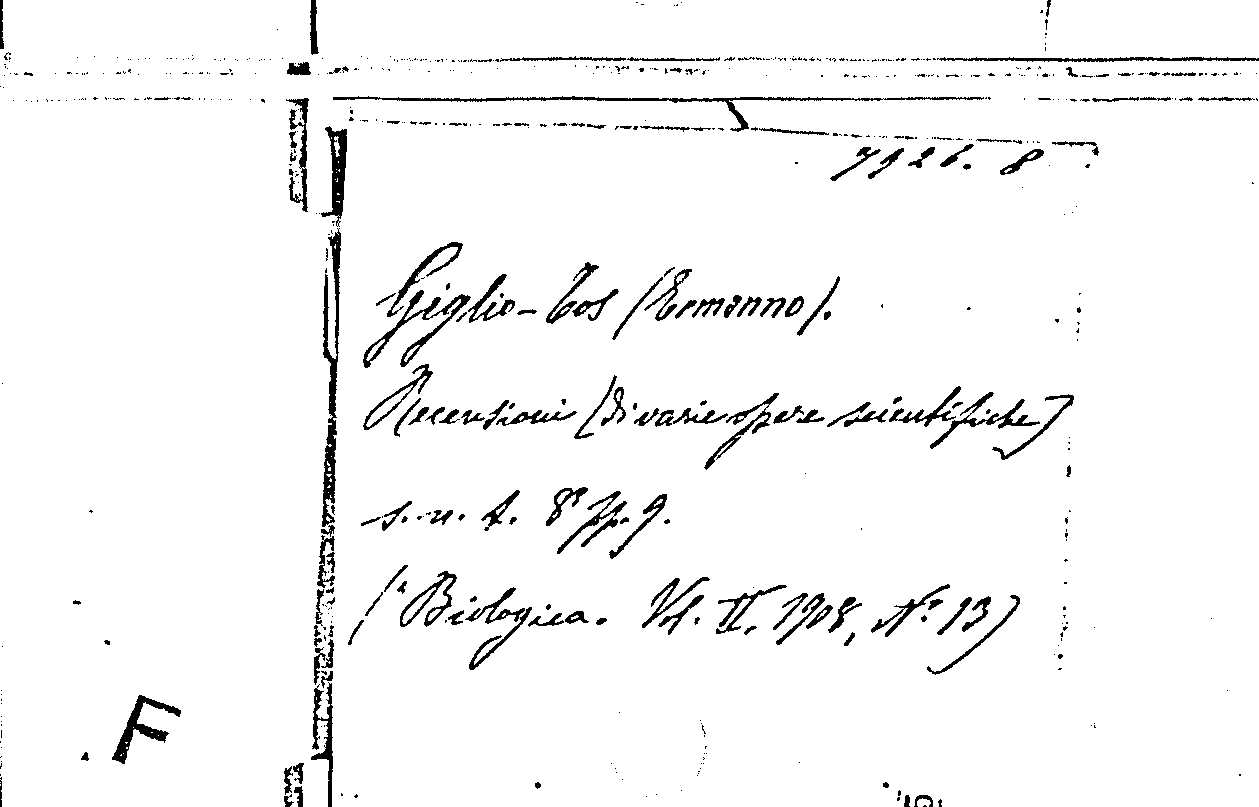 7926. 8
Giglio-Tos (Ermanno).
Recensioni (di varie opere scientifiche)
s. n. t. 8° pp. 9.
(" Biologica. Vol. II, 1908, N° 13)
F